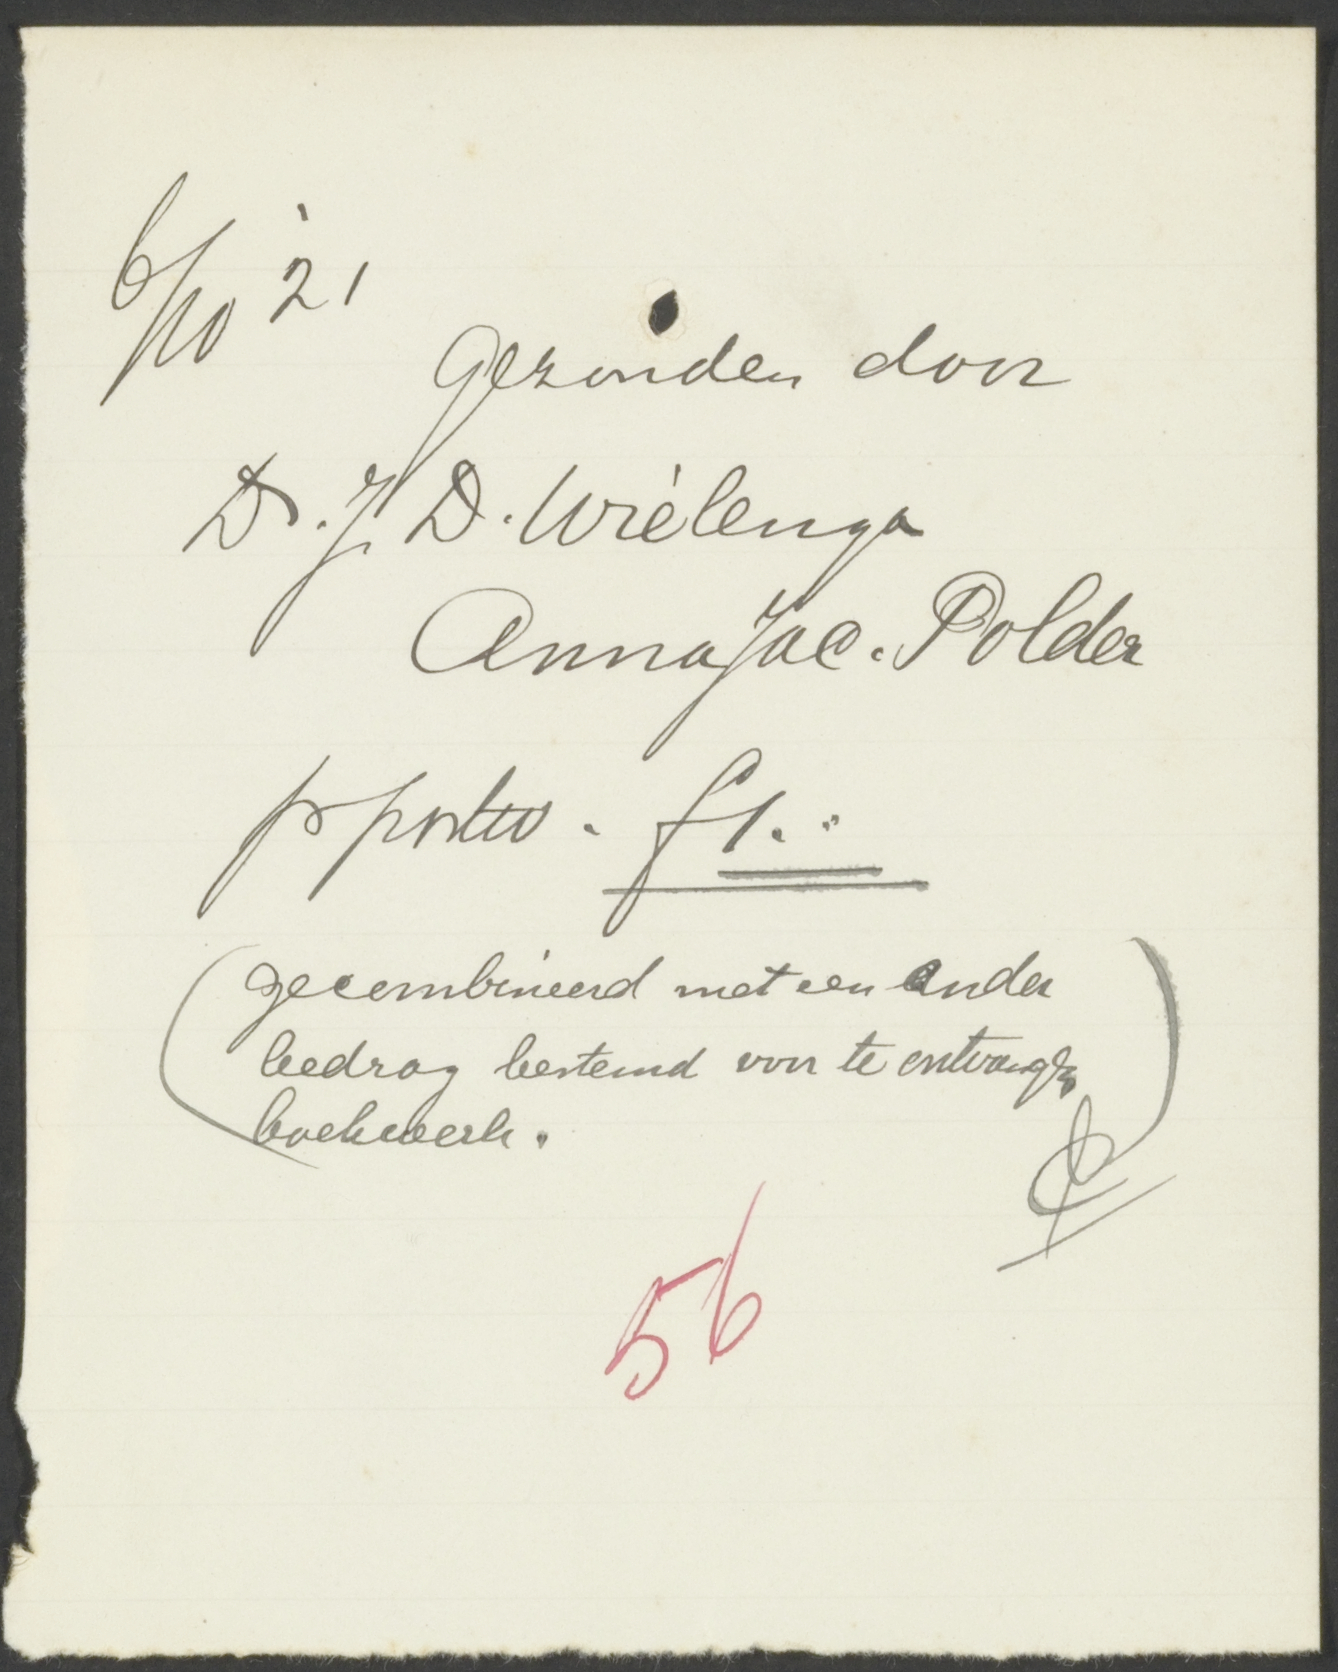 6/10 '21
Gezonden door
Dr. J. D. Wielenga
Anna Jac. Polder
pr porto. f 1. "
(gecombineerd met een ander
bedrag bestemd voor te ontvangen
boekwerk.)
56